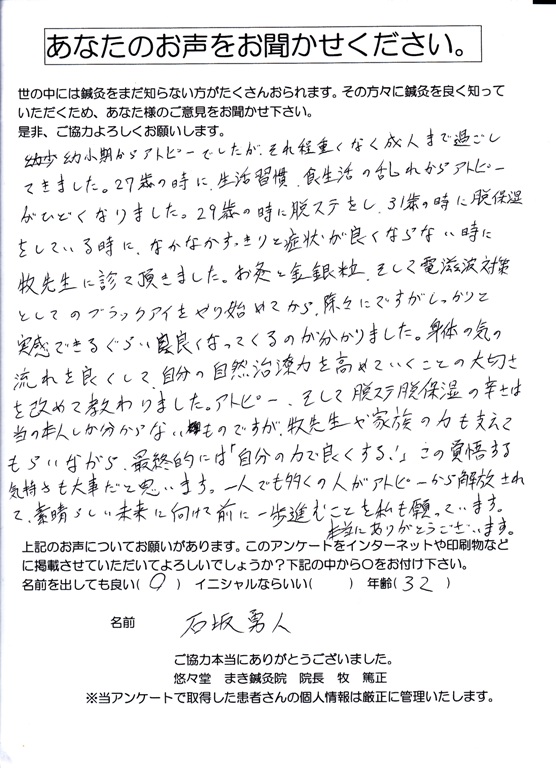 あなたのお声をお聞かせください。
世の中には鍼灸をまだ知らない方がたくさんおられます。その方々に鍼灸を良く知って
いただくため、あなた様のご意見をお聞かせ下さい。
是非、ご協力よろしくお願いします。
幼少幼小期からアトピーでしたが、それ程重くなく成人まで過ごし
てきました。27歳の時に、生活習慣、食生活の乱れからアトピー
がひどくなりました。29歳の時に脱ステをし、31歳の時に脱保湿
をしている時に、なかなかすっきりと症状が良くならない時に
牧先生に診て頂きました。お灸と金銀粒、そして電滋波対策
としてのブラックアイをやり始めてから、除々にですがしっかりと
実感できるぐらい良くなってくるのが分かりました。身体の気の
流れを良くして、自分の自然治療力を高めていくことの大切さ
を改めて教わりました。アトピー、そして脱ステ脱保湿の辛さは
当の本人しか分からないものですが、牧先生や家族の力も支えて
もらいながら、最終的には「自分の力で良くする!」この覚悟する
気持ちも大事だと思います。一人でも多くの人がアトピーから解放され
て、素晴らしい未来に向けて前に一歩進むことを私も願っています。
本当にありがとうございます。
上記のお声についてお願いがあります。このアンケートをインターネットや印刷物など
に掲載させていただいてよろしいでしょうか?下記の中から○をお付け下さい。
名前を出しても良い(○) イニシャルならいい( ) 年齢(32)
名前 石坂勇人
ご協力本当にありがとうございました。
悠々堂 まき鍼灸院 院長 牧 篤正
※当アンケートで取得した患者さんの個人情報は厳正に管理いたします。